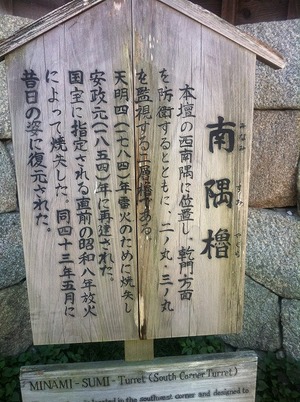 南隅櫓
みなみ すみ やぐら
本壇の西南隅に位置し、乾門方面
を防衛するとともに、二ノ丸、三ノ丸
を監視する二層櫓である。
天明四(一七八四)年雷火のために焼失し
安政元(一八五四)年に再建された。
国宝に指定される直前の昭和八年放火
によって焼失した。同四十三年五月に
昔日の姿に復元された。
MINAMI-SUMI-Turret (South Corner Turret)
located in the southwest corner and designed to